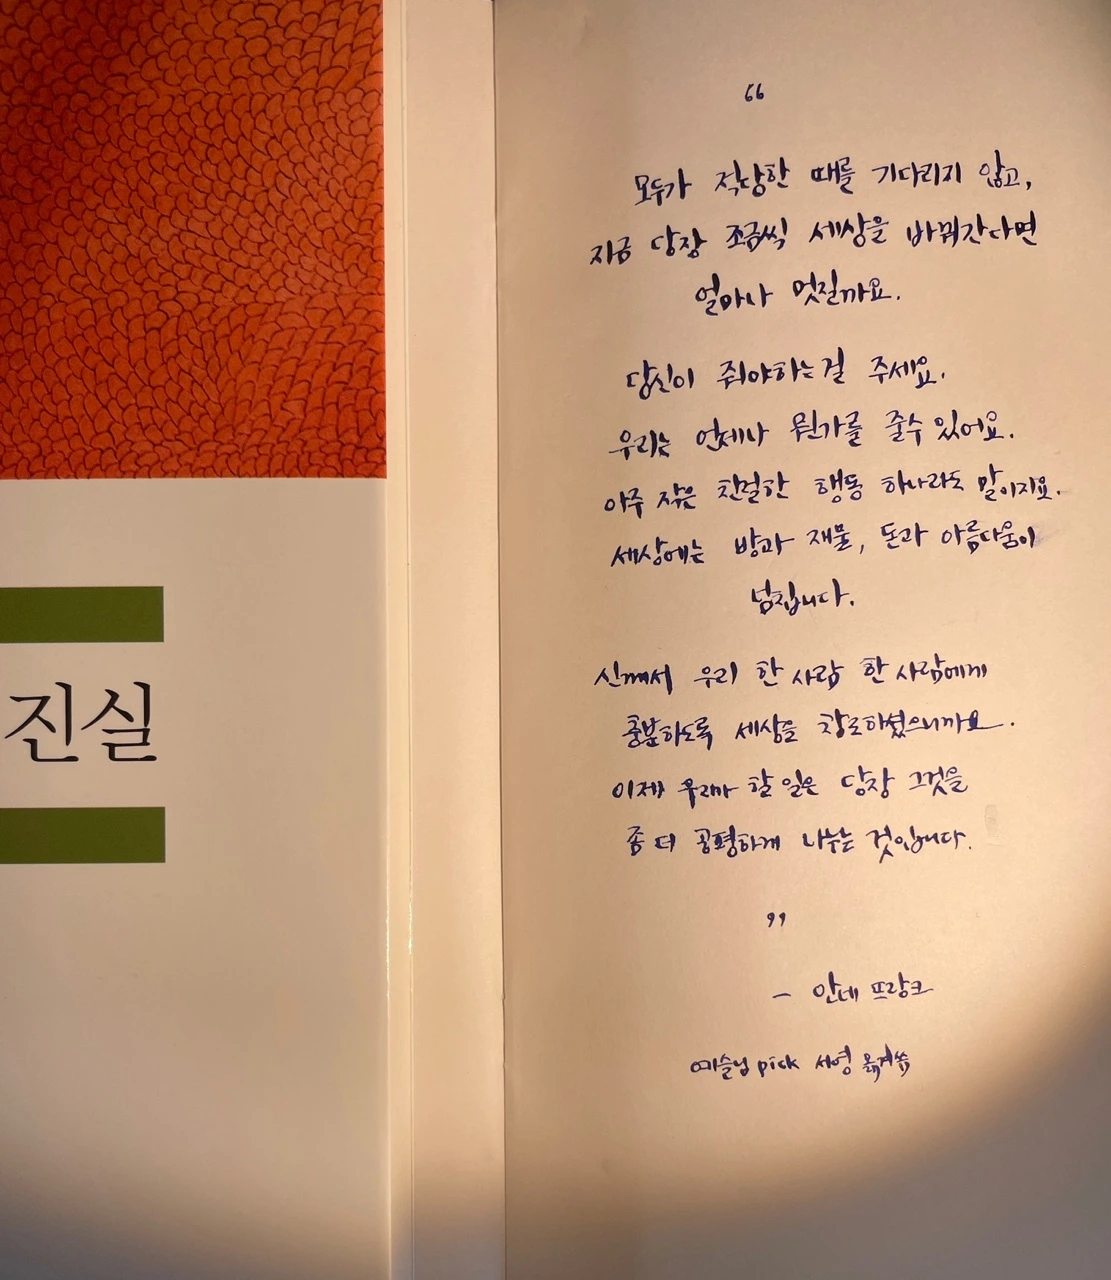 진실
“
모두가 적당한 때를 기다리지 않고,
지금 당장 조금씩 세상을 바꿔간다면
얼마나 멋질까요.
당신이 줘야하는걸 주세요.
우리는 언제나 뭔가를 줄수 있어요.
아주 작은 친절한 행동 하나라도 말이지요.
세상에는 방과 재물, 돈과 아름다움이
넘칩니다.
신께서 우리 한 사람 한 사람에게
충분하도록 세상을 창조하셨으니까요.
이제 우리가 할 일은 당장 그것을
좀 더 공평하게 나누는 것입니다.
”
- 안네 프랑크
예슬님 pick 서영 옮겨씀